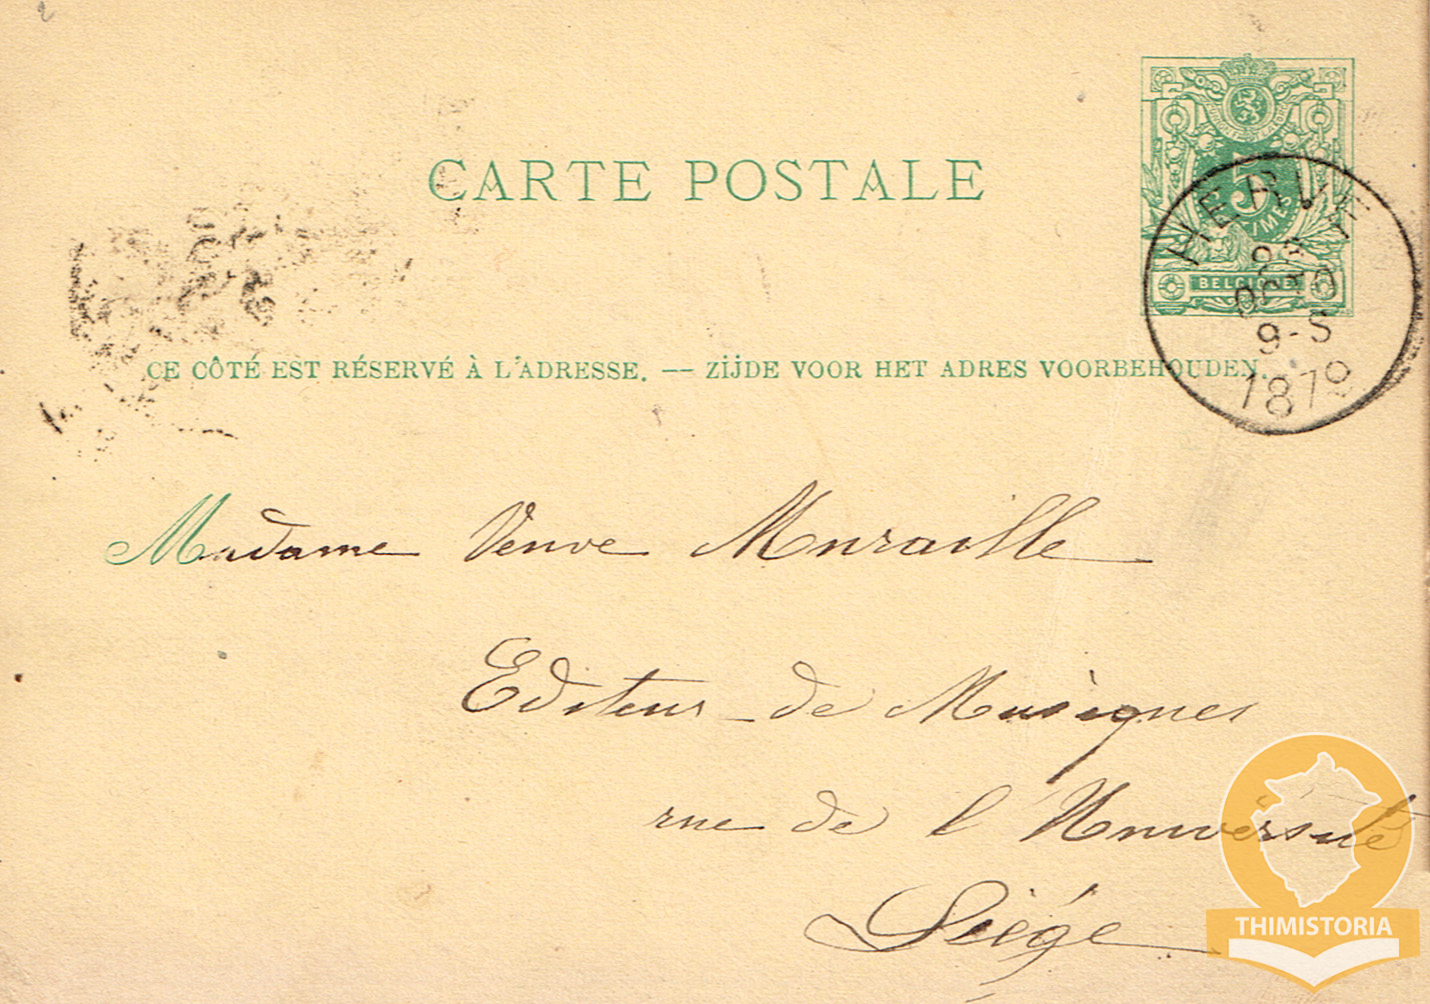 CARTE POSTALE
5
BELGIQUE
HERVE
OCTO
9-S
1879
CE CÔTÉ EST RÉSERVÉ À L'ADRESSE. — ZIJDE VOOR HET ADRES VOORBEHOUDEN.
Madame Veuve Muraille
Editeur de Musiques
rue de l'Université
Liége
THIMISTORIA